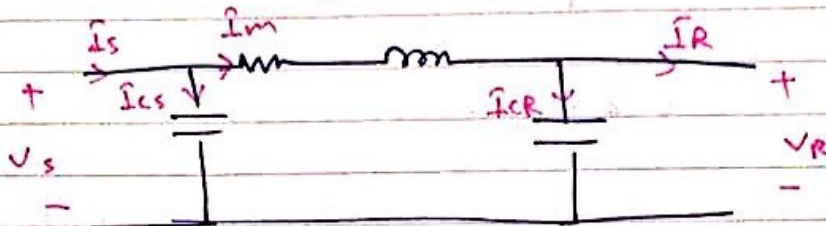 Is Im IR
+ Ics IcR +
Vs VR
- -